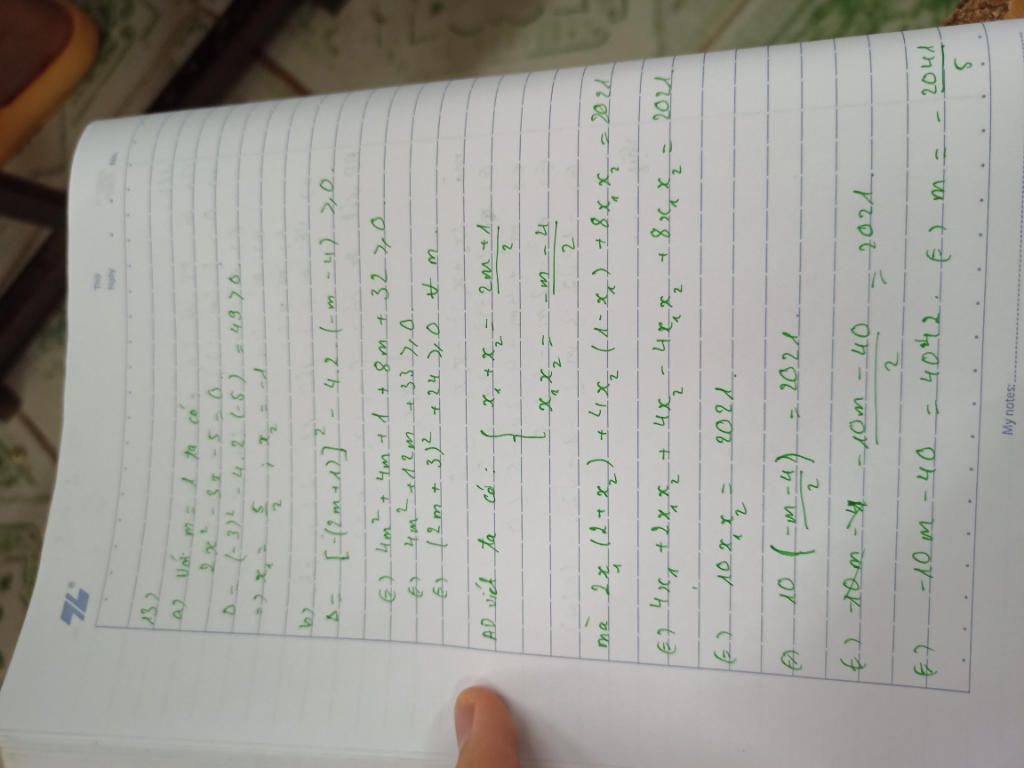 Thứ
Ngày
No.
13)
a) Với m = 1 ta có:
2x² - 3x - 5 = 0.
Δ = (-3)² - 4.2.(-5) = 49 > 0
=> x₁ = 5/2 ; x₂ = -1
b)
Δ = [-(2m+1)]² - 4.2.(-m-4) ≥ 0.
(=) 4m² + 4m + 1 + 8m + 32 ≥ 0
(=) 4m² + 12m + 33 ≥ 0
(=) (2m + 3)² + 24 ≥ 0 ∀ m.
AD viét ta có: { x₁ + x₂ = (2m + 1)/2
x₁x₂ = (-m - 4)/2
mà 2x₁(2 + x₂) + 4x₂(1 - x₁) + 8x₁x₂ = 2021
(=) 4x₁ + 2x₁x₂ + 4x₂ - 4x₁x₂ + 8x₁x₂ = 2021
(=) 10x₁x₂ = 2021.
(=) 10 ((-m-4)/2) = 2021.
(=) (-10m - 40)/2 = 2021.
(=) -10m - 40 = 4042. (=) m = -2041/5
My notes: